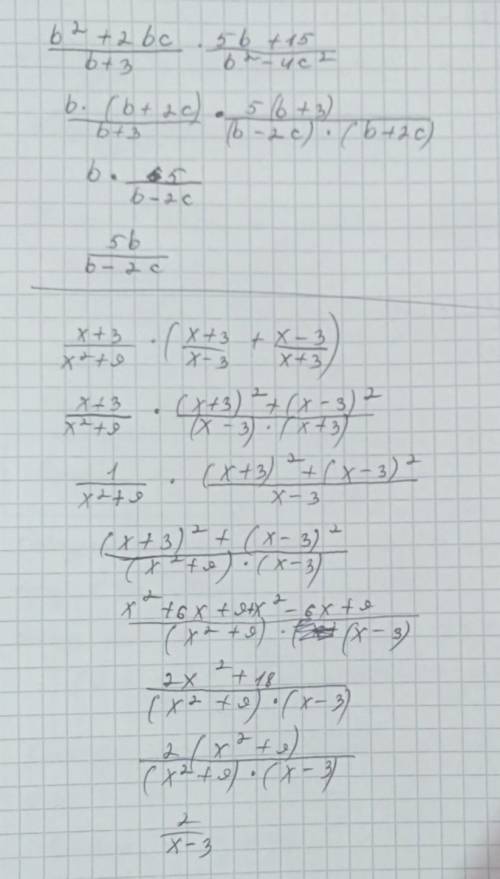 (b² + 2bc)/(b+3) · (5b + 15)/(b² - 4c²)
(b · (b + 2c))/(b+3) · (5(b + 3))/((b - 2c) · (b + 2c))
b · 5/(b - 2c)
5b/(b - 2c)
(x+3)/(x²+9) · ((x+3)/(x-3) + (x-3)/(x+3))
(x+3)/(x²+9) · ((x+3)² + (x-3)²)/((x-3) · (x+3))
1/(x²+9) · ((x+3)² + (x-3)²)/(x-3)
((x+3)² + (x-3)²)/((x²+9) · (x-3))
(x² + 6x + 9 + x² - 6x + 9)/((x²+9) · (x-3))
(2x² + 18)/((x² + 9) · (x-3))
(2(x² + 9))/((x²+9) · (x-3))
2/(x-3)